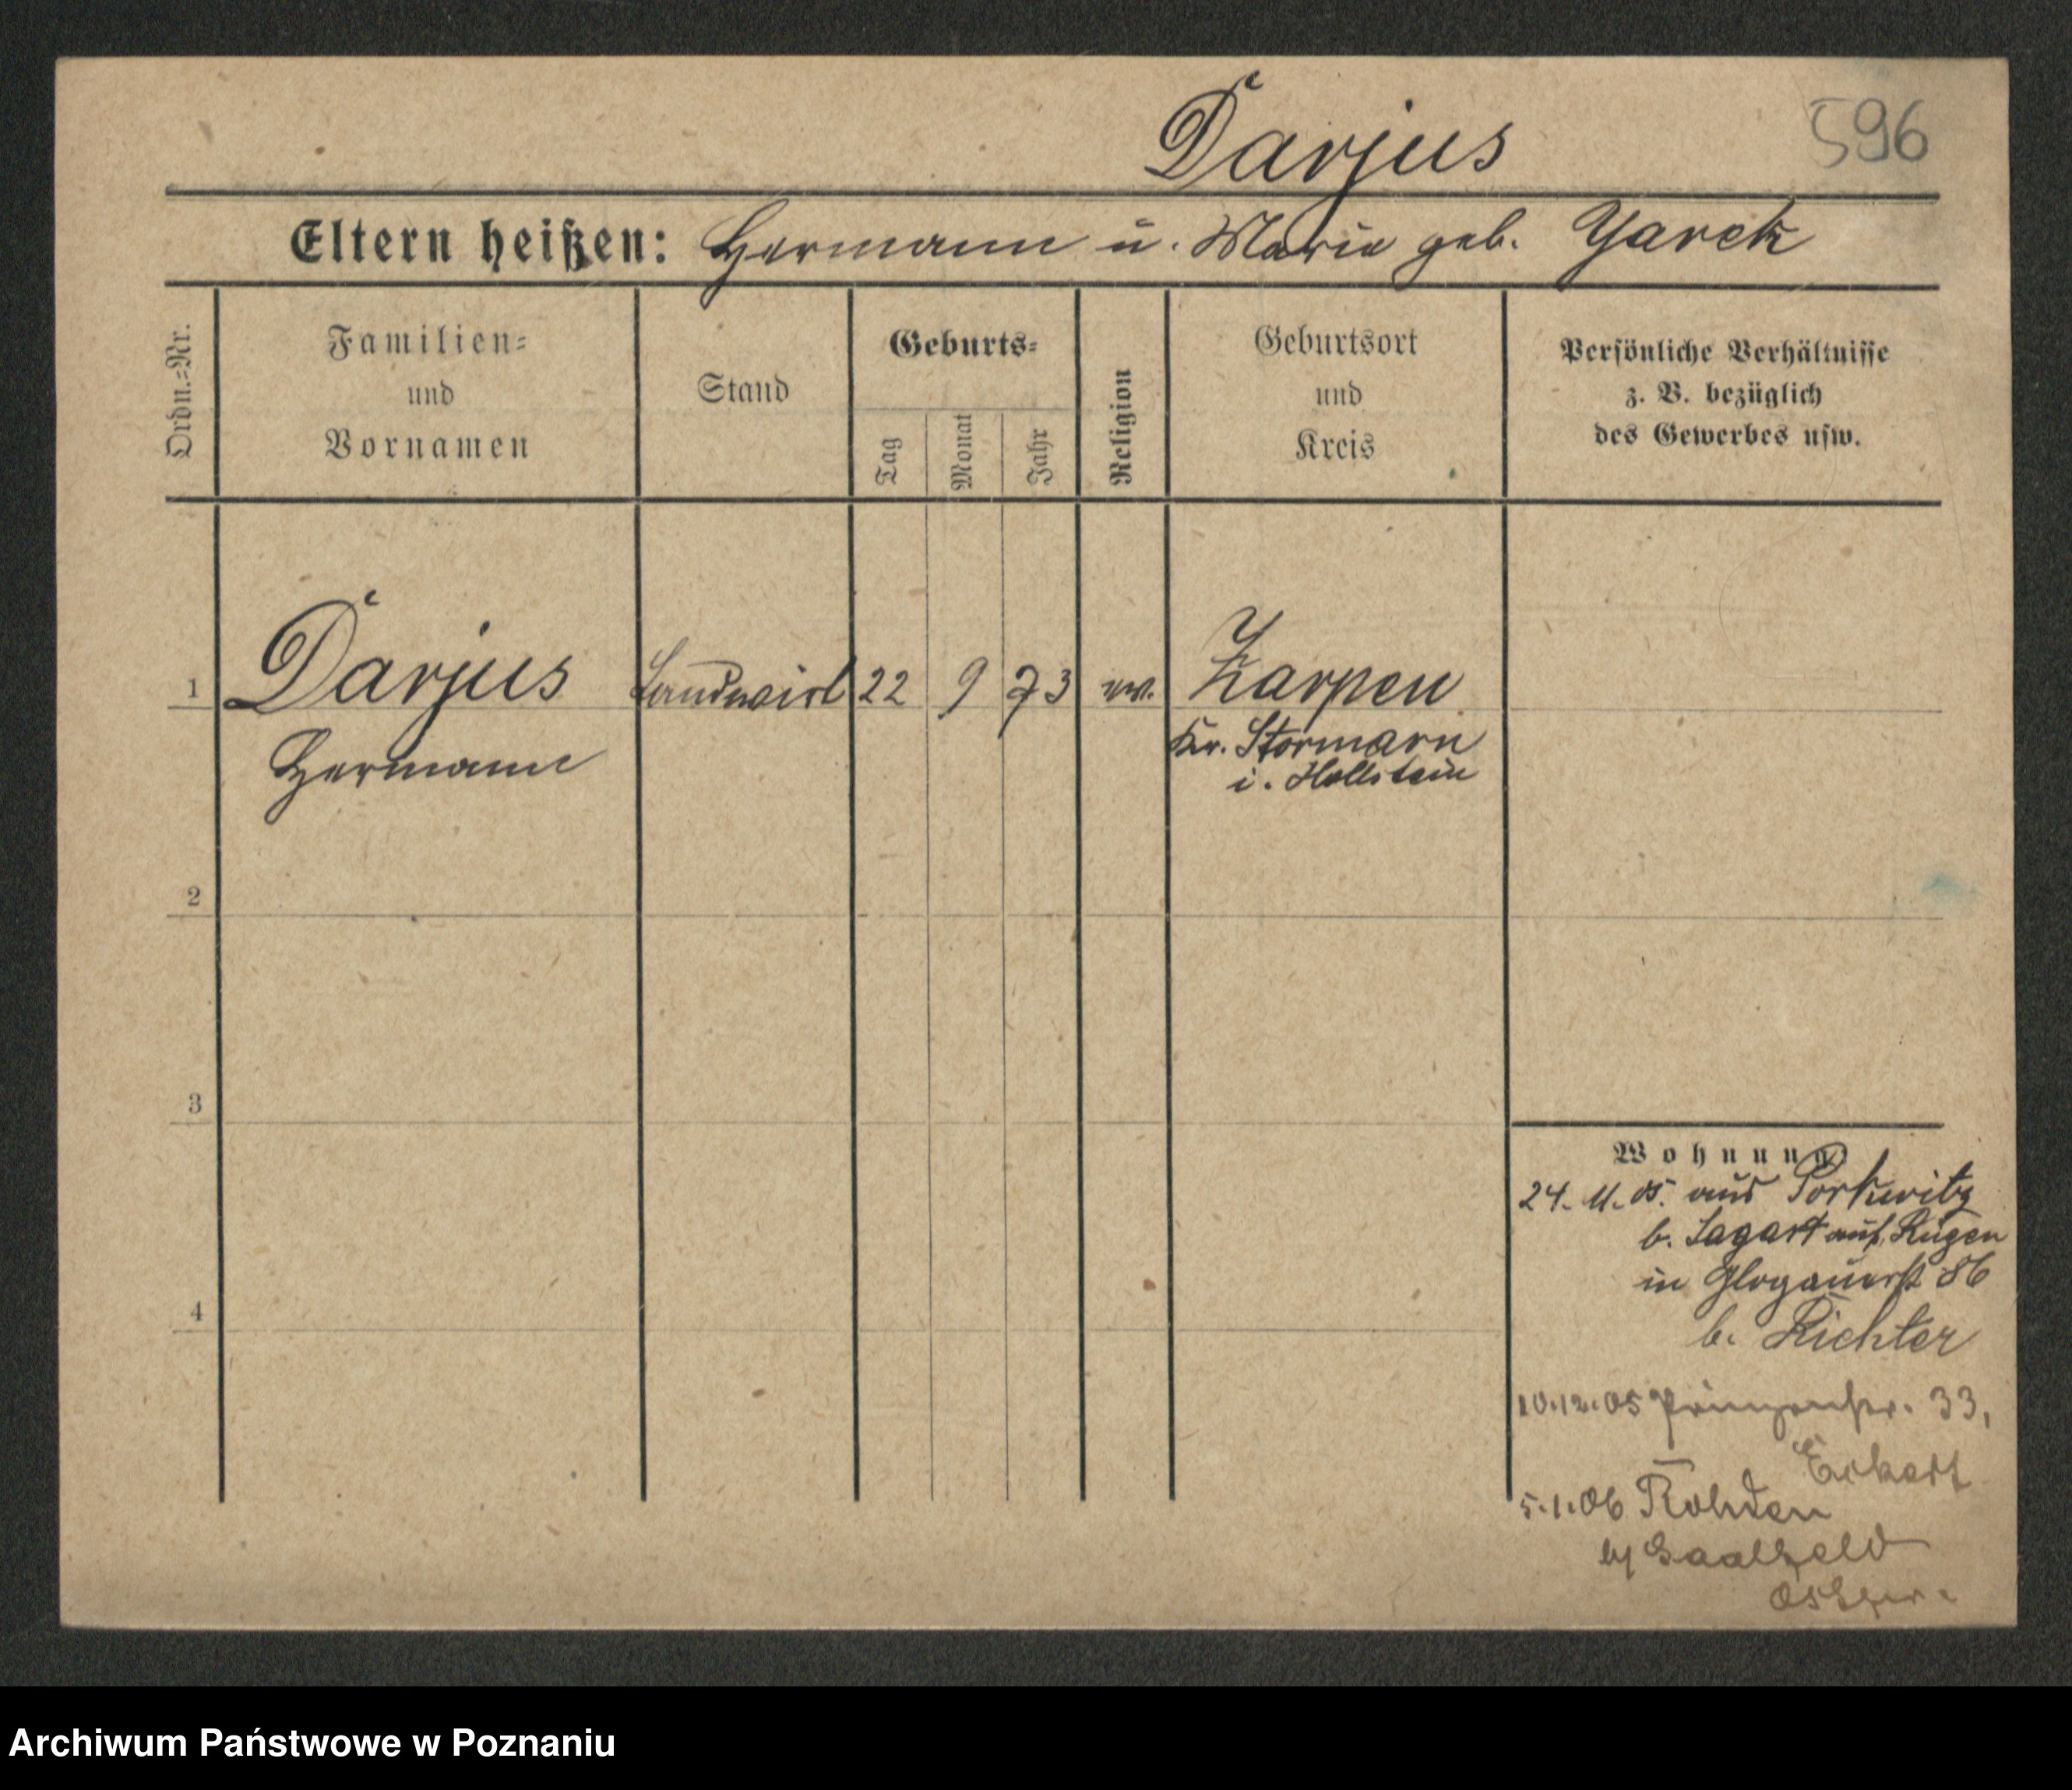 Darjus
596
Eltern heißen: Hermann u. Marie geb. Yarck
Ordn.=Nr.
Familien=
und
Vornamen
Stand
Geburts=
Tag
Monat
Jahr
Religion
Geburtsort
und
Kreis
Persönliche Verhältnisse
z. B. bezüglich
des Gewerbes usw.
1 Darjus Landwirt 22 9 73 ev. Zarpen
Hermann Kr. Stormarn
i. Hollstein
2
3
4
Wohnung
24. 11. 05. aus
b. Sagart auf Rügen
in Glogauerst 86
b. Richter
10.12.05 Prinzenstr. 33,
Eckert
5.1.06 Rohden
b/ Saalfeld
Ostpr.
Archiwum Państwowe w Poznaniu